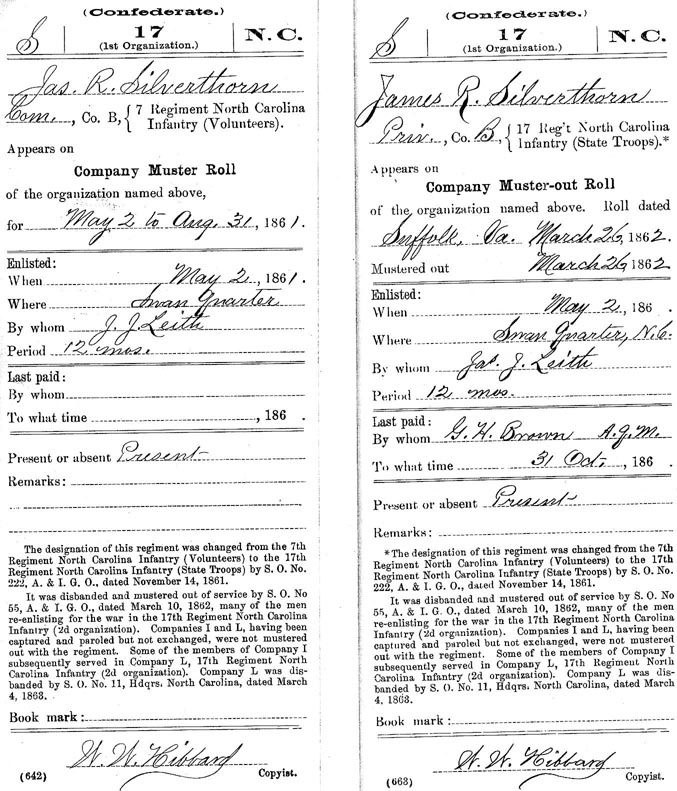 (Confederate.)
S | 17 | N. C.
(1st Organization.)
Jas. R. Silverthorn
Com., Co. B, { 7 Regiment North Carolina
Infantry (Volunteers).
Appears on
Company Muster Roll
of the organization named above,
for May 2 to Aug. 31, 1861.
Enlisted:
When May 2, 1861.
Where Swan Quarter
By whom J. J Leith
Period 12 mos.
Last paid:
By whom
To what time , 186 .
Present or absent Present
Remarks:
The designation of this regiment was changed from the 7th
Regiment North Carolina Infantry (Volunteers) to the 17th
Regiment North Carolina Infantry (State Troops) by S. O. No.
222, A. & I. G. O., dated November 14, 1861.
It was disbanded and mustered out of service by S. O. No
55, A. & I. G. O., dated March 10, 1862, many of the men
re-enlisting for the war in the 17th Regiment North Carolina
Infantry (2d organization). Companies I and L, having been
captured and paroled but not exchanged, were not mustered
out with the regiment. Some of the members of Company I
subsequently served in Company L, 17th Regiment North
Carolina Infantry (2d organization). Company L was dis-
banded by S. O. No. 11, Hdqrs. North Carolina, dated March
4, 1863.
Book mark:
W. W. Hibbard
(642) Copyist.
(Confederate.)
S | 17 | N. C.
(1st Organization.)
James R. Silverthorn
Priv., Co. B, { 17 Reg't North Carolina
Infantry (State Troops).*
Appears on
Company Muster-out Roll
of the organization named above. Roll dated
Suffolk, Va. March 26, 1862.
Mustered out March 26, 1862
Enlisted:
When May 2, 186 .
Where Swan Quarter, N.C.
By whom Jas. J. Leith
Period 12 mos.
Last paid:
By whom G. H. Brown A.Q.M.
To what time 31 Oct., 186 .
Present or absent Present
Remarks:
*The designation of this regiment was changed from the 7th
Regiment North Carolina Infantry (Volunteers) to the 17th
Regiment North Carolina Infantry (State Troops) by S. O. No.
222, A. & I. G. O., dated November 14, 1861.
It was disbanded and mustered out of service by S. O. No
55, A. & I. G. O., dated March 10, 1862, many of the men
re-enlisting for the war in the 17th Regiment North Carolina
Infantry (2d organization). Companies I and L, having been
captured and paroled but not exchanged, were not mustered
out with the regiment. Some of the members of Company I
subsequently served in Company L, 17th Regiment North
Carolina Infantry (2d organization). Company L was dis-
banded by S. O. No. 11, Hdqrs. North Carolina, dated March
4, 1863.
Book mark:
W. W. Hibbard
(663) Copyist.